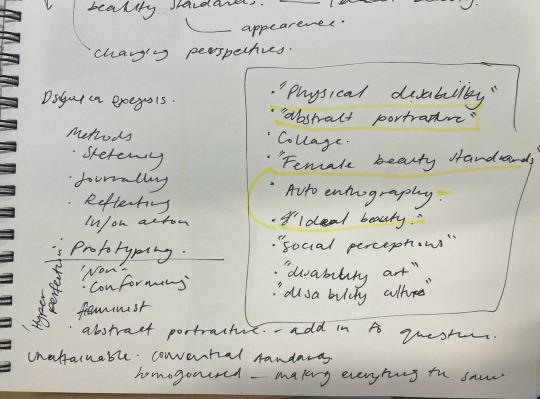 beauty standards.
appearence.
changing perspectives.
Methods
· Sketching
· Journalling
· Reflecting
in/on action
· Prototyping.
'Non-
· Conforming
feminist
· abstract portraiture. - add in to question.
unattainable. conventional standards.
homogonised - making everything the same.
Hyper perfection
· "Physical disability"
· "abstract portraiture"
· Collage.
· "Female beauty standards"
· Auto enthography.
· "Ideal beauty."
· "social perceptions"
· "disability art"
· "disability culture"